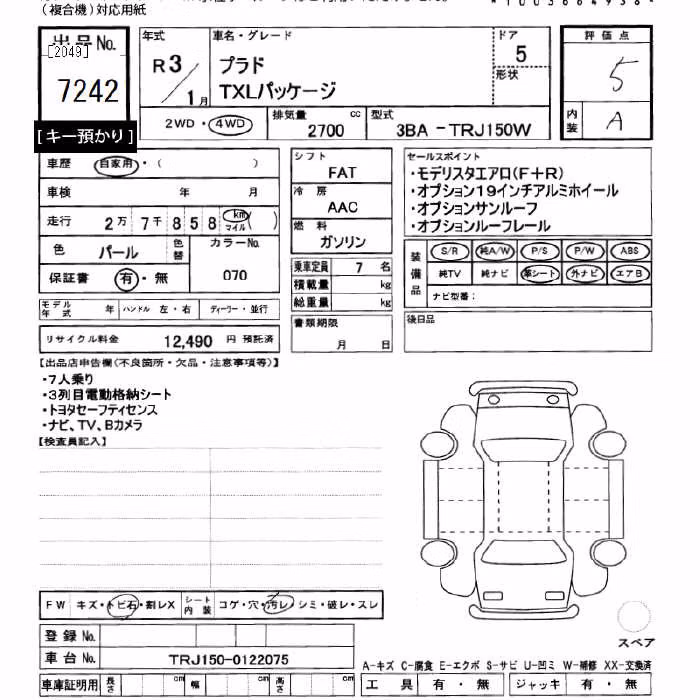 (複合機)対応用紙
出品No.
[2049]
7242
[キー預かり]
年式
R3／1月
車名・グレード
プラド
TXLパッケージ
ドア
5
形状
評価点
5
内装
A
2WD・4WD
排気量
2700 cc
型式
3BA－TRJ150W
車歴 自家用・（ ）
車検 年 月
走行 2万 7千 8 5 8 km マイル ( )
色 パール 色替
カラーNo. 070
保証書 有・無
モデル年式 年 ハンドル 左・右 ディーラー・並行
リサイクル料金 12,490 円 預託済
シフト
FAT
冷房
AAC
燃料
ガソリン
乗車定員 7 名
積載量 kg
総重量 kg
書類期限
月 日
セールスポイント
・モデリスタエアロ(F＋R)
・オプション19インチアルミホイール
・オプションサンルーフ
・オプションルーフレール
装備品
S/R 純A/W P/S P/W ABS
純TV 純ナビ 革シート 外ナビ エアB
ナビ型番：
後日品
【出品店申告欄(不良箇所・欠品・注意事項等)】
・7人乗り
・3列目電動格納シート
・トヨタセーフティセンス
・ナビ、TV、Bカメラ
【検査員記入】
FW キズ・トビ石・割レX シート内装 コゲ・穴・汚レ・シミ・破レ・スレ
登録No.
車台No. TRJ150-0122075
車庫証明用 長さ cm 幅 cm 高さ cm
スペア
A-キズ C-腐食 E-エクボ S-サビ U-凹ミ W-補修 XX-交換済
工具 有・無 ジャッキ 有・無